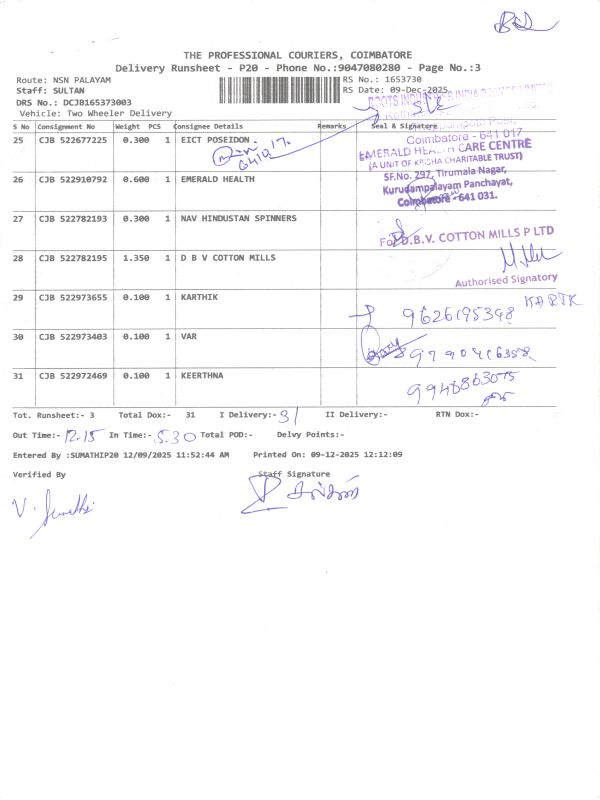 THE PROFESSIONAL COURIERS, COIMBATORE
Delivery Runsheet - P20 - Phone No.:9047080280 - Page No.:3
Route: NSN PALAYAM RS No.: 1653730
Staff: SULTAN RS Date: 09-Dec-2025
DRS No.: DCJB165373003
Vehicle: Two Wheeler Delivery
S No Consignment No Weight PCS Consignee Details Remarks Seal & Signature
Coimbatore - 641 017
25 CJB 522677225 0.300 1 EICT POSEIDON
641017.
EMERALD HEALTH CARE CENTRE
(A UNIT OF KRISHA CHARITABLE TRUST)
26 CJB 522910792 0.600 1 EMERALD HEALTH
SF.No. 297, Tirumala Nagar,
Kurudampalayam Panchayat,
Coimbatore - 641 031.
27 CJB 522782193 0.300 1 NAV HINDUSTAN SPINNERS
For D.B.V. COTTON MILLS P LTD
28 CJB 522782195 1.350 1 D B V COTTON MILLS
Authorised Signatory
29 CJB 522973655 0.100 1 KARTHIK
9626195348
30 CJB 522973403 0.100 1 VAR
31 CJB 522972469 0.100 1 KEERTHNA
Tot. Runsheet:- 3 Total Dox:- 31 I Delivery:- 31 II Delivery:- RTN Dox:-
Out Time:- 12.15 In Time:- 5.30 Total POD:- Delvy Points:-
Entered By :SUMATHIP20 12/09/2025 11:52:44 AM Printed On: 09-12-2025 12:12:09
Verified By Staff Signature
V. Sumathi